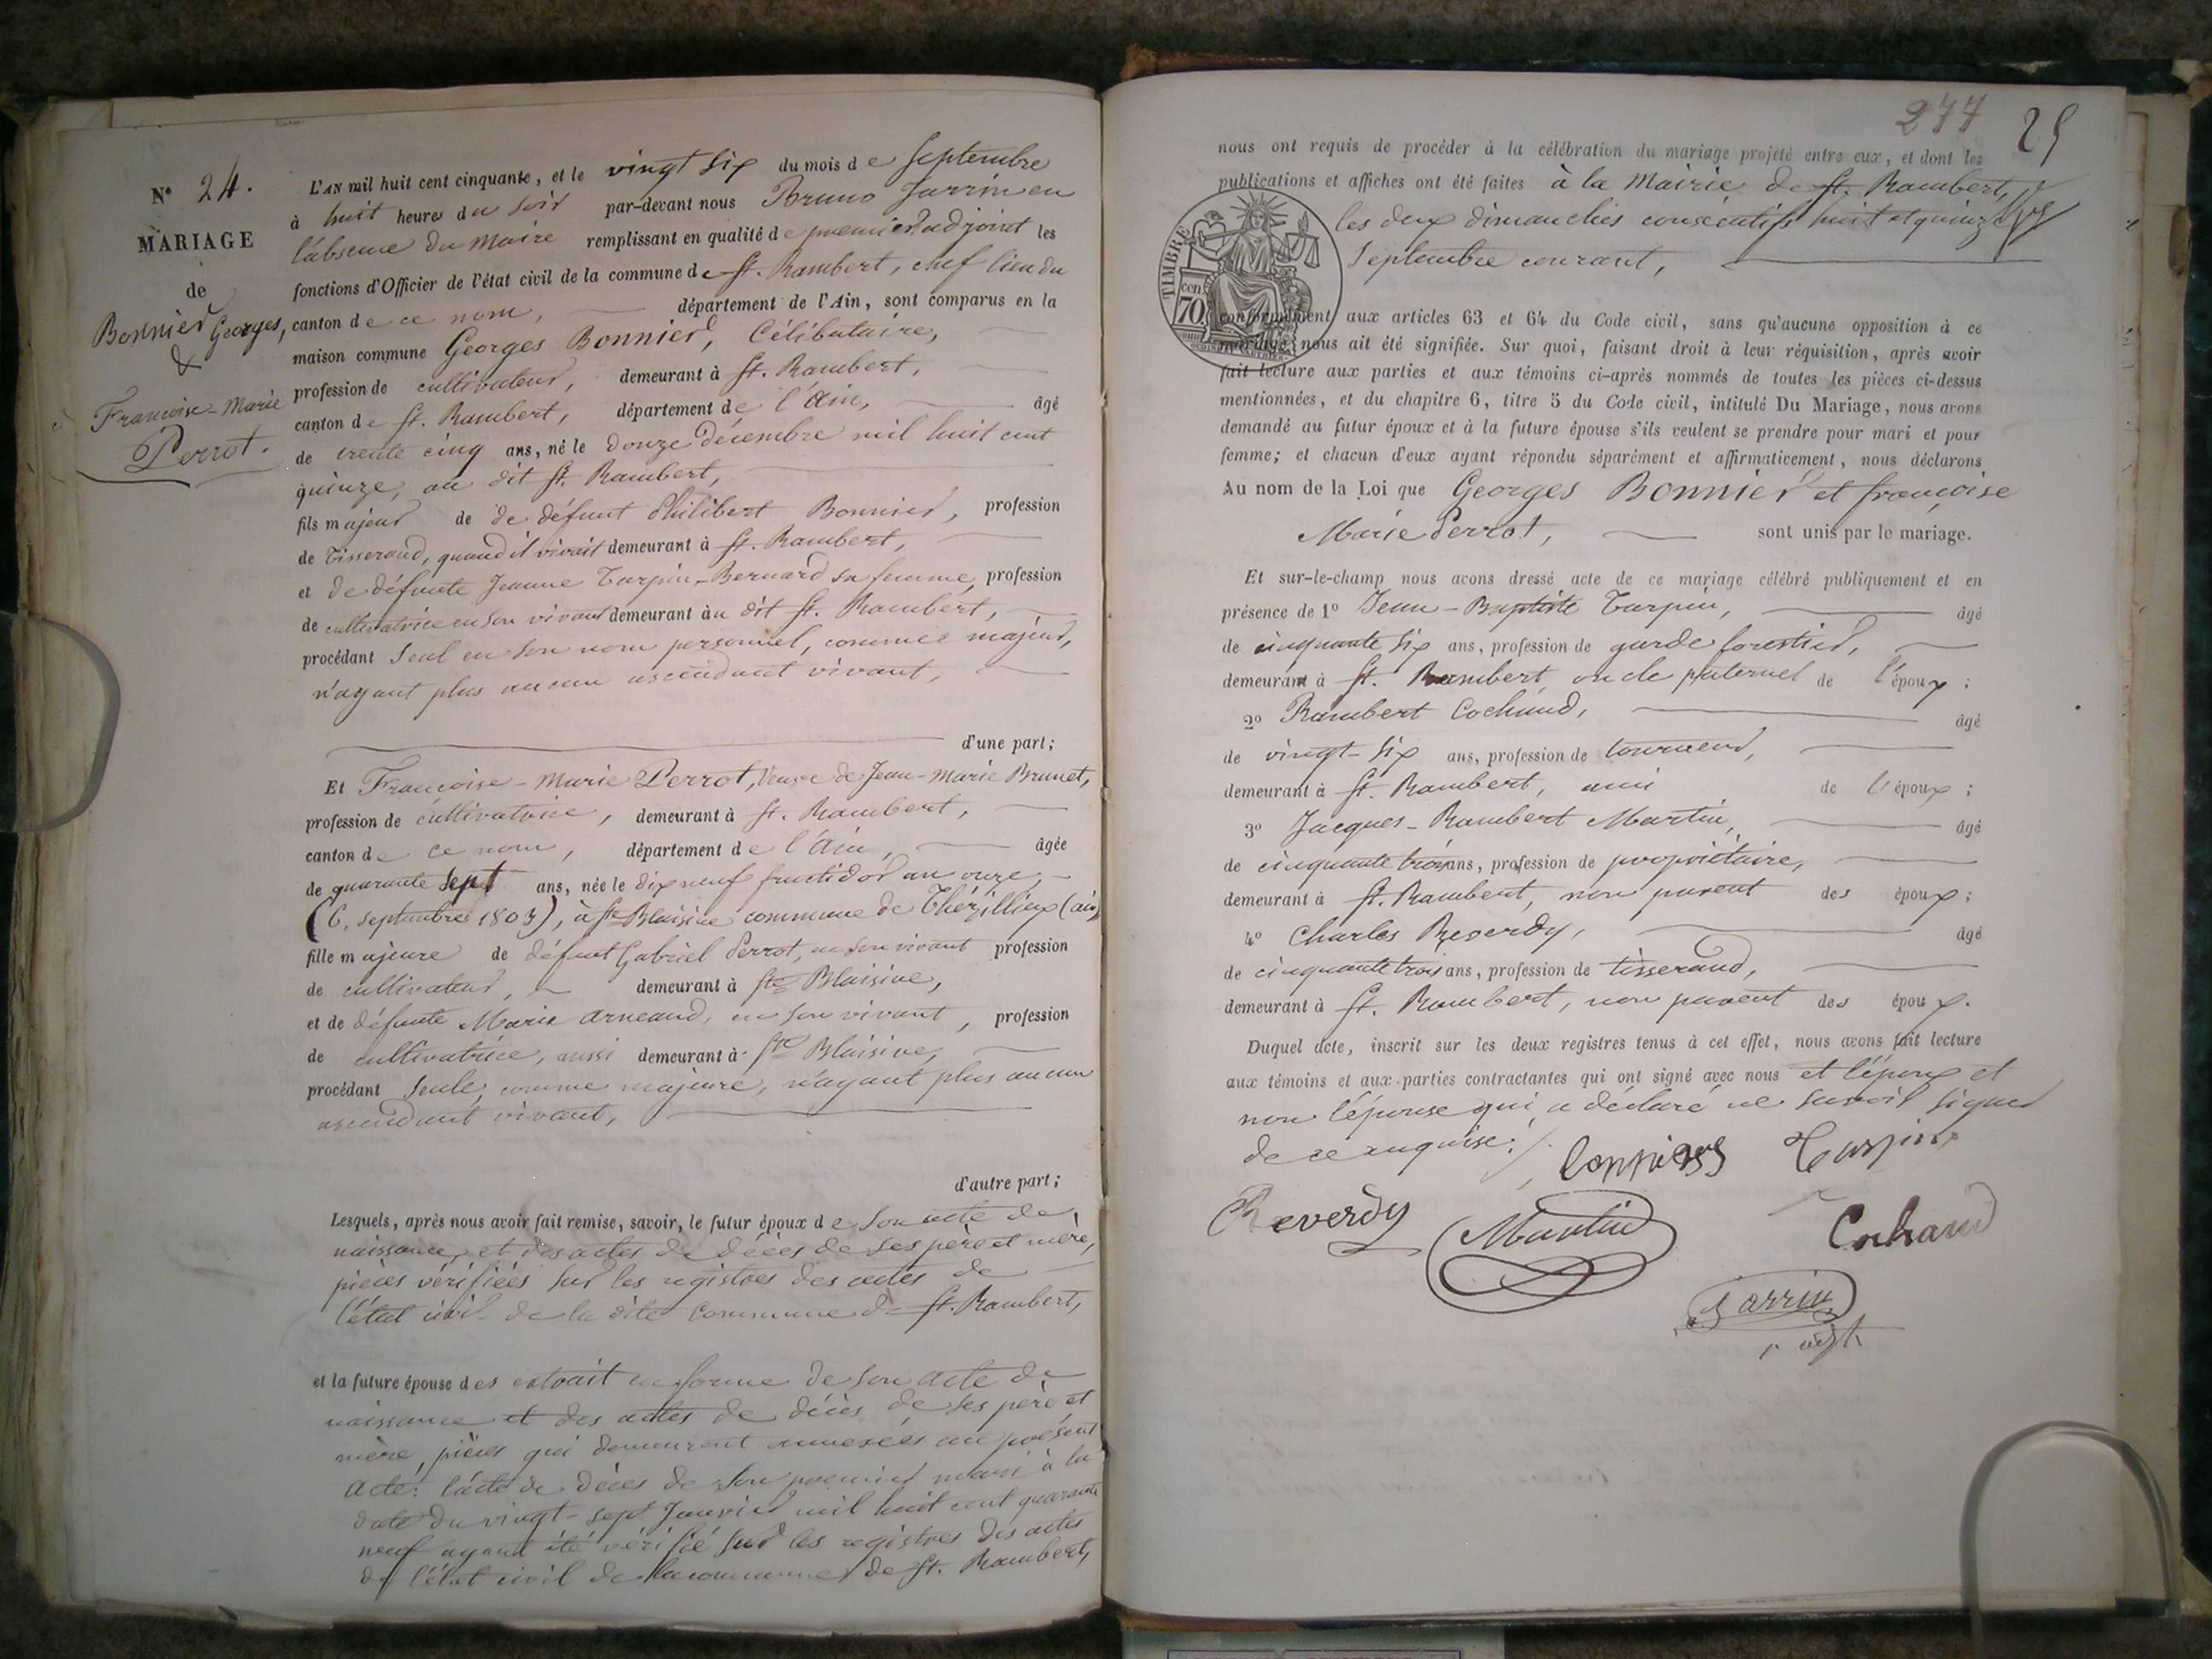 N° 24.
MARIAGE
de
Bonnier Georges,
&
Françoise-Marie
Perrot.
L'AN mil huit cent cinquante, et le vingt six du mois de septembre
à huit heures du soir par-devant nous Bruno Jarrin en
l'absence du Maire remplissant en qualité de premier adjoint les
fonctions d'Officier de l'état civil de la commune de St. Rambert, chef lieu du
canton de ce nom, département de l'Ain, sont comparus en la
maison commune Georges Bonnier, Célibataire,
profession de cultivateur, demeurant à St. Rambert,
canton de St. Rambert, département de l'Ain, âgé
de trente cinq ans, né le Douze Décembre mil huit cent
quinze, au dit St. Rambert,
fils majeur de de défunt Philibert Bonnier, profession
de Tisserand, quand il vivait demeurant à St. Rambert,
et de défunte Jeanne Turpin-Bernard sa femme, profession
de cultivatrice en son vivant demeurant au dit St. Rambert,
procédant seul en son nom personnel, comme majeur,
n'ayant plus aucun ascendant vivant,
d'une part;
Et Françoise-Marie Perrot, Veuve de Jean-Marie Brunet,
profession de cultivatrice, demeurant à St. Rambert,
canton de ce nom, département de l'Ain, âgée
de quarante sept ans, née le dix neuf fructidor an onze,
(6, septembre 1803), à Ste Blaisine commune de Thézillieux (ain)
fille majeure de défunt Gabriel Perrot, en son vivant profession
de cultivateur, demeurant à Ste Blaisine,
et de défunte Marie Arneaud, en son vivant, profession
de cultivatrice, aussi demeurant à Ste Blaisine,
procédant seule, comme majeure, n'ayant plus aucun
ascendant vivant,
d'autre part;
Lesquels, après nous avoir fait remise, savoir, le futur époux de son acte de
naissance, et des actes de décès de ses père et mère,
pièces vérifiées sur les registres des actes de
l'état civil de la dite commune de St. Rambert,
et la future épouse des extrait en forme de son acte de
naissance et des actes de décès de ses père et
mère, pièces qui demeurent annexées au présent
acte: l'acte de décès de son premier mari à la
date du vingt-sept Janvier mil huit cent quarante
neuf ayant été vérifié sur les registres des actes
de l'état civil de la commune de St. Rambert,
277
25
nous ont requis de procéder à la célébration du mariage projeté entre eux, et dont les
publications et affiches ont été faites à la Mairie de St. Rambert,
les deux dimanches consécutifs huit et quinze
septembre courant,
TIMBRE
70 cen
conformément aux articles 63 et 64 du Code civil, sans qu'aucune opposition à ce
mariage nous ait été signifiée. Sur quoi, faisant droit à leur réquisition, après avoir
fait lecture aux parties et aux témoins ci-après nommés de toutes les pièces ci-dessus
mentionnées, et du chapitre 6, titre 5 du Code civil, intitulé Du Mariage, nous avons
demandé au futur époux et à la future épouse s'ils veulent se prendre pour mari et pour
femme; et chacun d'eux ayant répondu séparément et affirmativement, nous déclarons
Au nom de la Loi que Georges Bonnier et françoise
Marie Perrot, sont unis par le mariage.
Et sur-le-champ nous avons dressé acte de ce mariage célébré publiquement et en
présence de 1° Jean-Baptiste Turpin, âgé
de cinquante six ans, profession de garde forestier,
demeurant à St. Rambert, oncle paternel de l'époux;
2° Rambert Cochaud, âgé
de vingt-six ans, profession de tourneur,
demeurant à St. Rambert, ami de l'époux;
3° Jacques-Rambert Martin, âgé
de cinquante trois ans, profession de propriétaire,
demeurant à St. Rambert, non parent des époux;
4° Charles Reverdy, âgé
de cinquante trois ans, profession de tisserand,
demeurant à St. Rambert, non parent des époux.
Duquel acte, inscrit sur les deux registres tenus à cet effet, nous avons fait lecture
aux témoins et aux parties contractantes qui ont signé avec nous et l'époux et
non l'épouse qui a déclaré ne savoir signer
de ce enquise.
bonnier Turpin
Reverdy Martin Cochaud
Jarrin
adjt